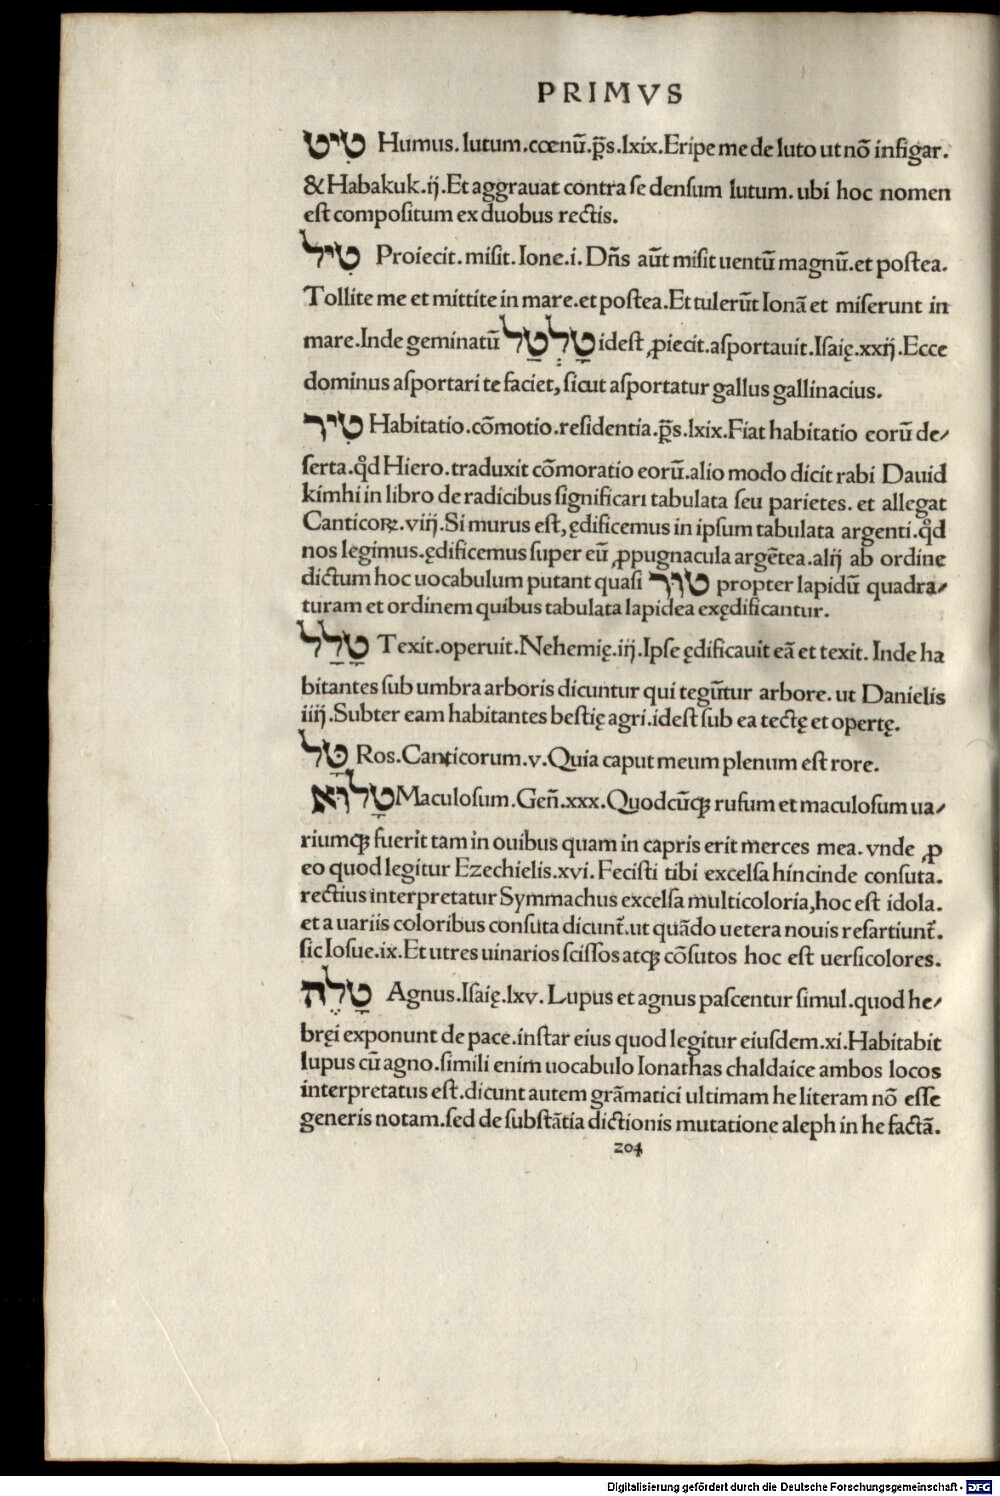 PRIMVS
טִיט Humus. lutum. cœnū. p̄s. lxix. Eripe me de luto ut nō infigar.
& Habakuk. ij. Et aggrauat contra se densum lutum. ubi hoc nomen
est compositum ex duobus rectis.
טִיל Proiecit. misit. Ione. i. Dn̄s aūt misit uentū magnū. et postea.
Tollite me et mittite in mare. et postea. Et tulerūt Ionā et miserunt in
mare. Inde geminatū טָלְטַל idest ꝓiecit. asportauit. Isaię. xxij. Ecce
dominus asportari te faciet, sicut asportatur gallus gallinacius.
טִיר Habitatio. cōmotio. residentia. p̄s. lxix. Fiat habitatio eorū de/
serta. qd̄ Hiero. traduxit cōmoratio eorū. alio modo dicit rabi Dauid
kimhi in libro de radicibus significari tabulata seu parietes. et allegat
Canticoꝝ. viij. Si murus est, ędificemus in ipsum tabulata argenti. qd̄
nos legimus. ędificemus super eū ꝓpugnacula argētea. alij ab ordine
dictum hoc uocabulum putant quasi טוּר propter lapidū quadra/
turam et ordinem quibus tabulata lapidea exędificantur.
טָלַל Texit. operuit. Nehemię. iij. Ipse ędificauit eā et texit. Inde ha
bitantes sub umbra arboris dicuntur qui tegūtur arbore. ut Danielis
iiij. Subter eam habitantes bestię agri. idest sub ea tectę et opertę.
טַל Ros. Canticorum. v. Quia caput meum plenum est rore.
טָלוּא Maculosum. Gen̄. xxx. Quodcūqꝫ rufum et maculosum ua/
riumqꝫ fuerit tam in ouibus quam in capris erit merces mea. vnde ꝓ
eo quod legitur Ezechielis. xvi. Fecisti tibi excelsa hincinde consuta.
rectius interpretatur Symmachus excelsa multicoloria, hoc est idola.
et a uariis coloribus consuta dicunt̄. ut quādo uetera nouis resartiunt̄.
sic Iosue. ix. Et utres uinarios scissos atqꝫ cōsutos hoc est uersicolores.
טָלֶה Agnus. Isaię. lxv. Lupus et agnus pascentur simul. quod he/
bręi exponunt de pace. instar eius quod legitur eiusdem. xi. Habitabit
lupus cū agno. simili enim uocabulo Ionathas chaldaice ambos locos
interpretatus est. dicunt autem grāmatici ultimam he literam nō esse
generis notam. sed de substātia dictionis mutatione aleph in he factā.
204
Digitalisierung gefördert durch die Deutsche Forschungsgemeinschaft - DFG